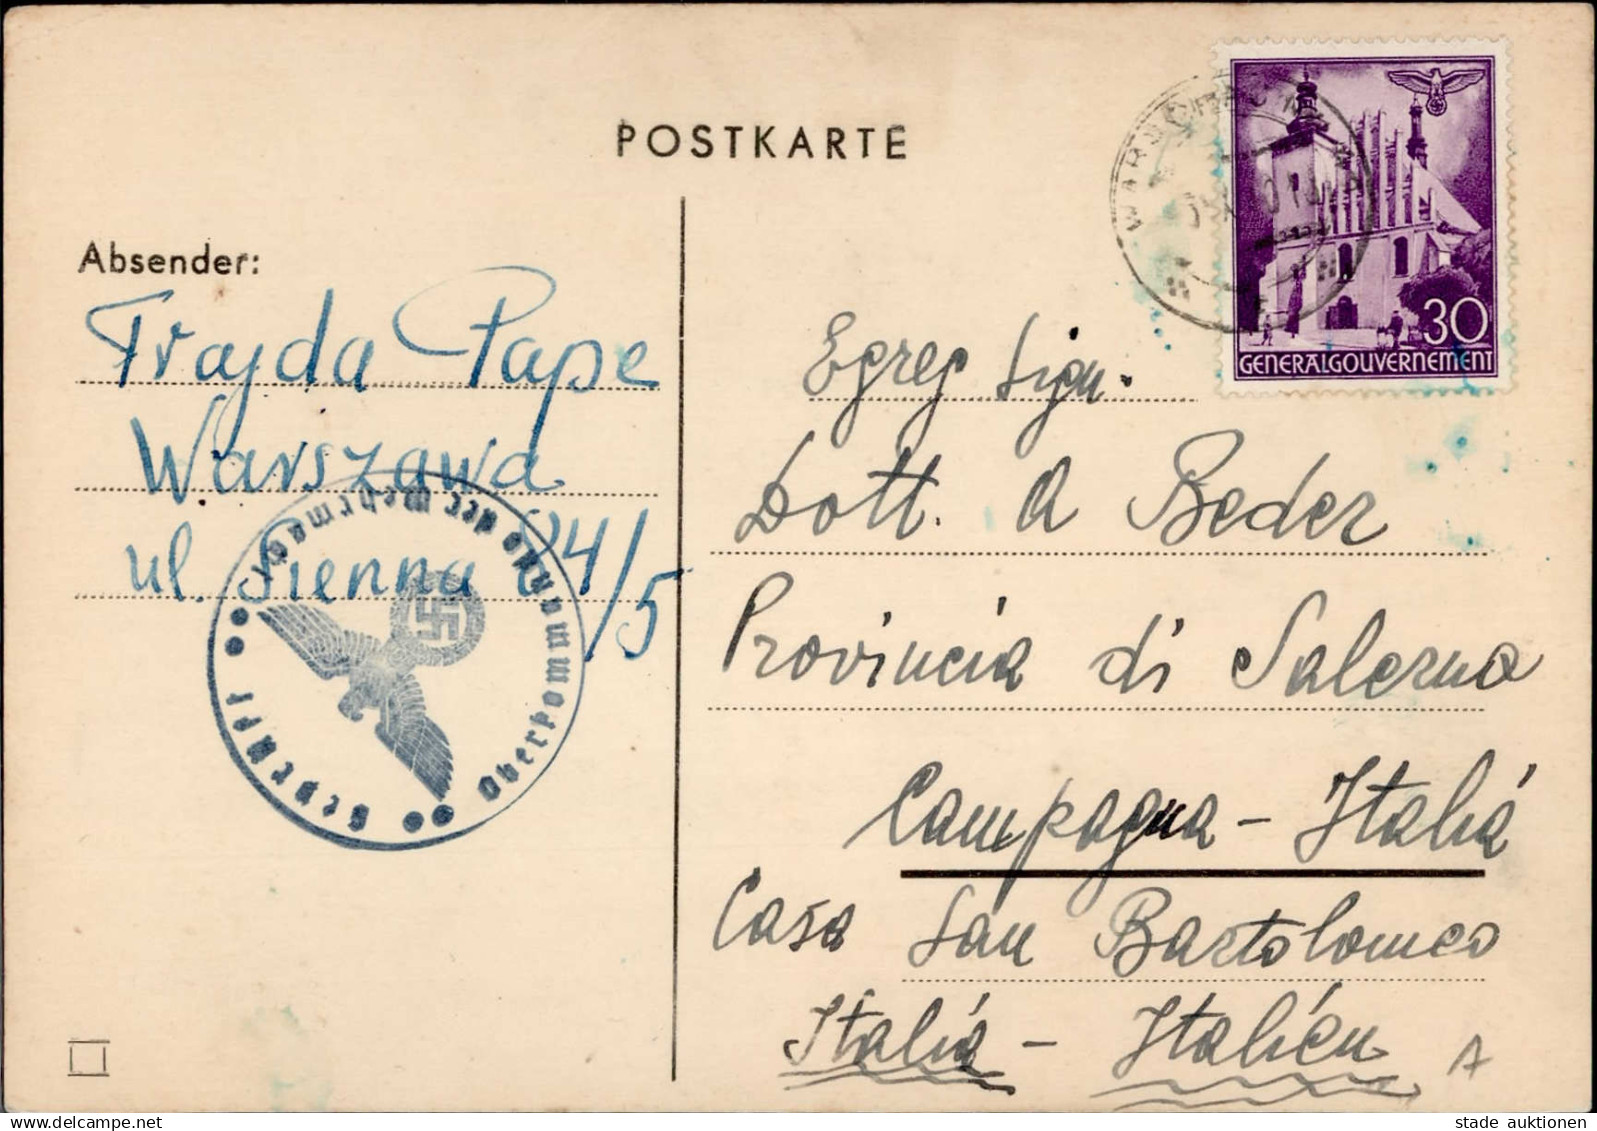 POSTKARTE
WARSCHAU
30
GENERALGOUVERNEMENT
Absender:
Frajda Pape
Warszawa
ul. Sienna 84/5
Oberkommando der Wehrmacht
Geprüft
Egreg Sign.
Dott. A Beder
Provincia di Salerno
Campagna - Italiá
Casa San Bartolomeo
Italiá - Italien
A
stade auktionen